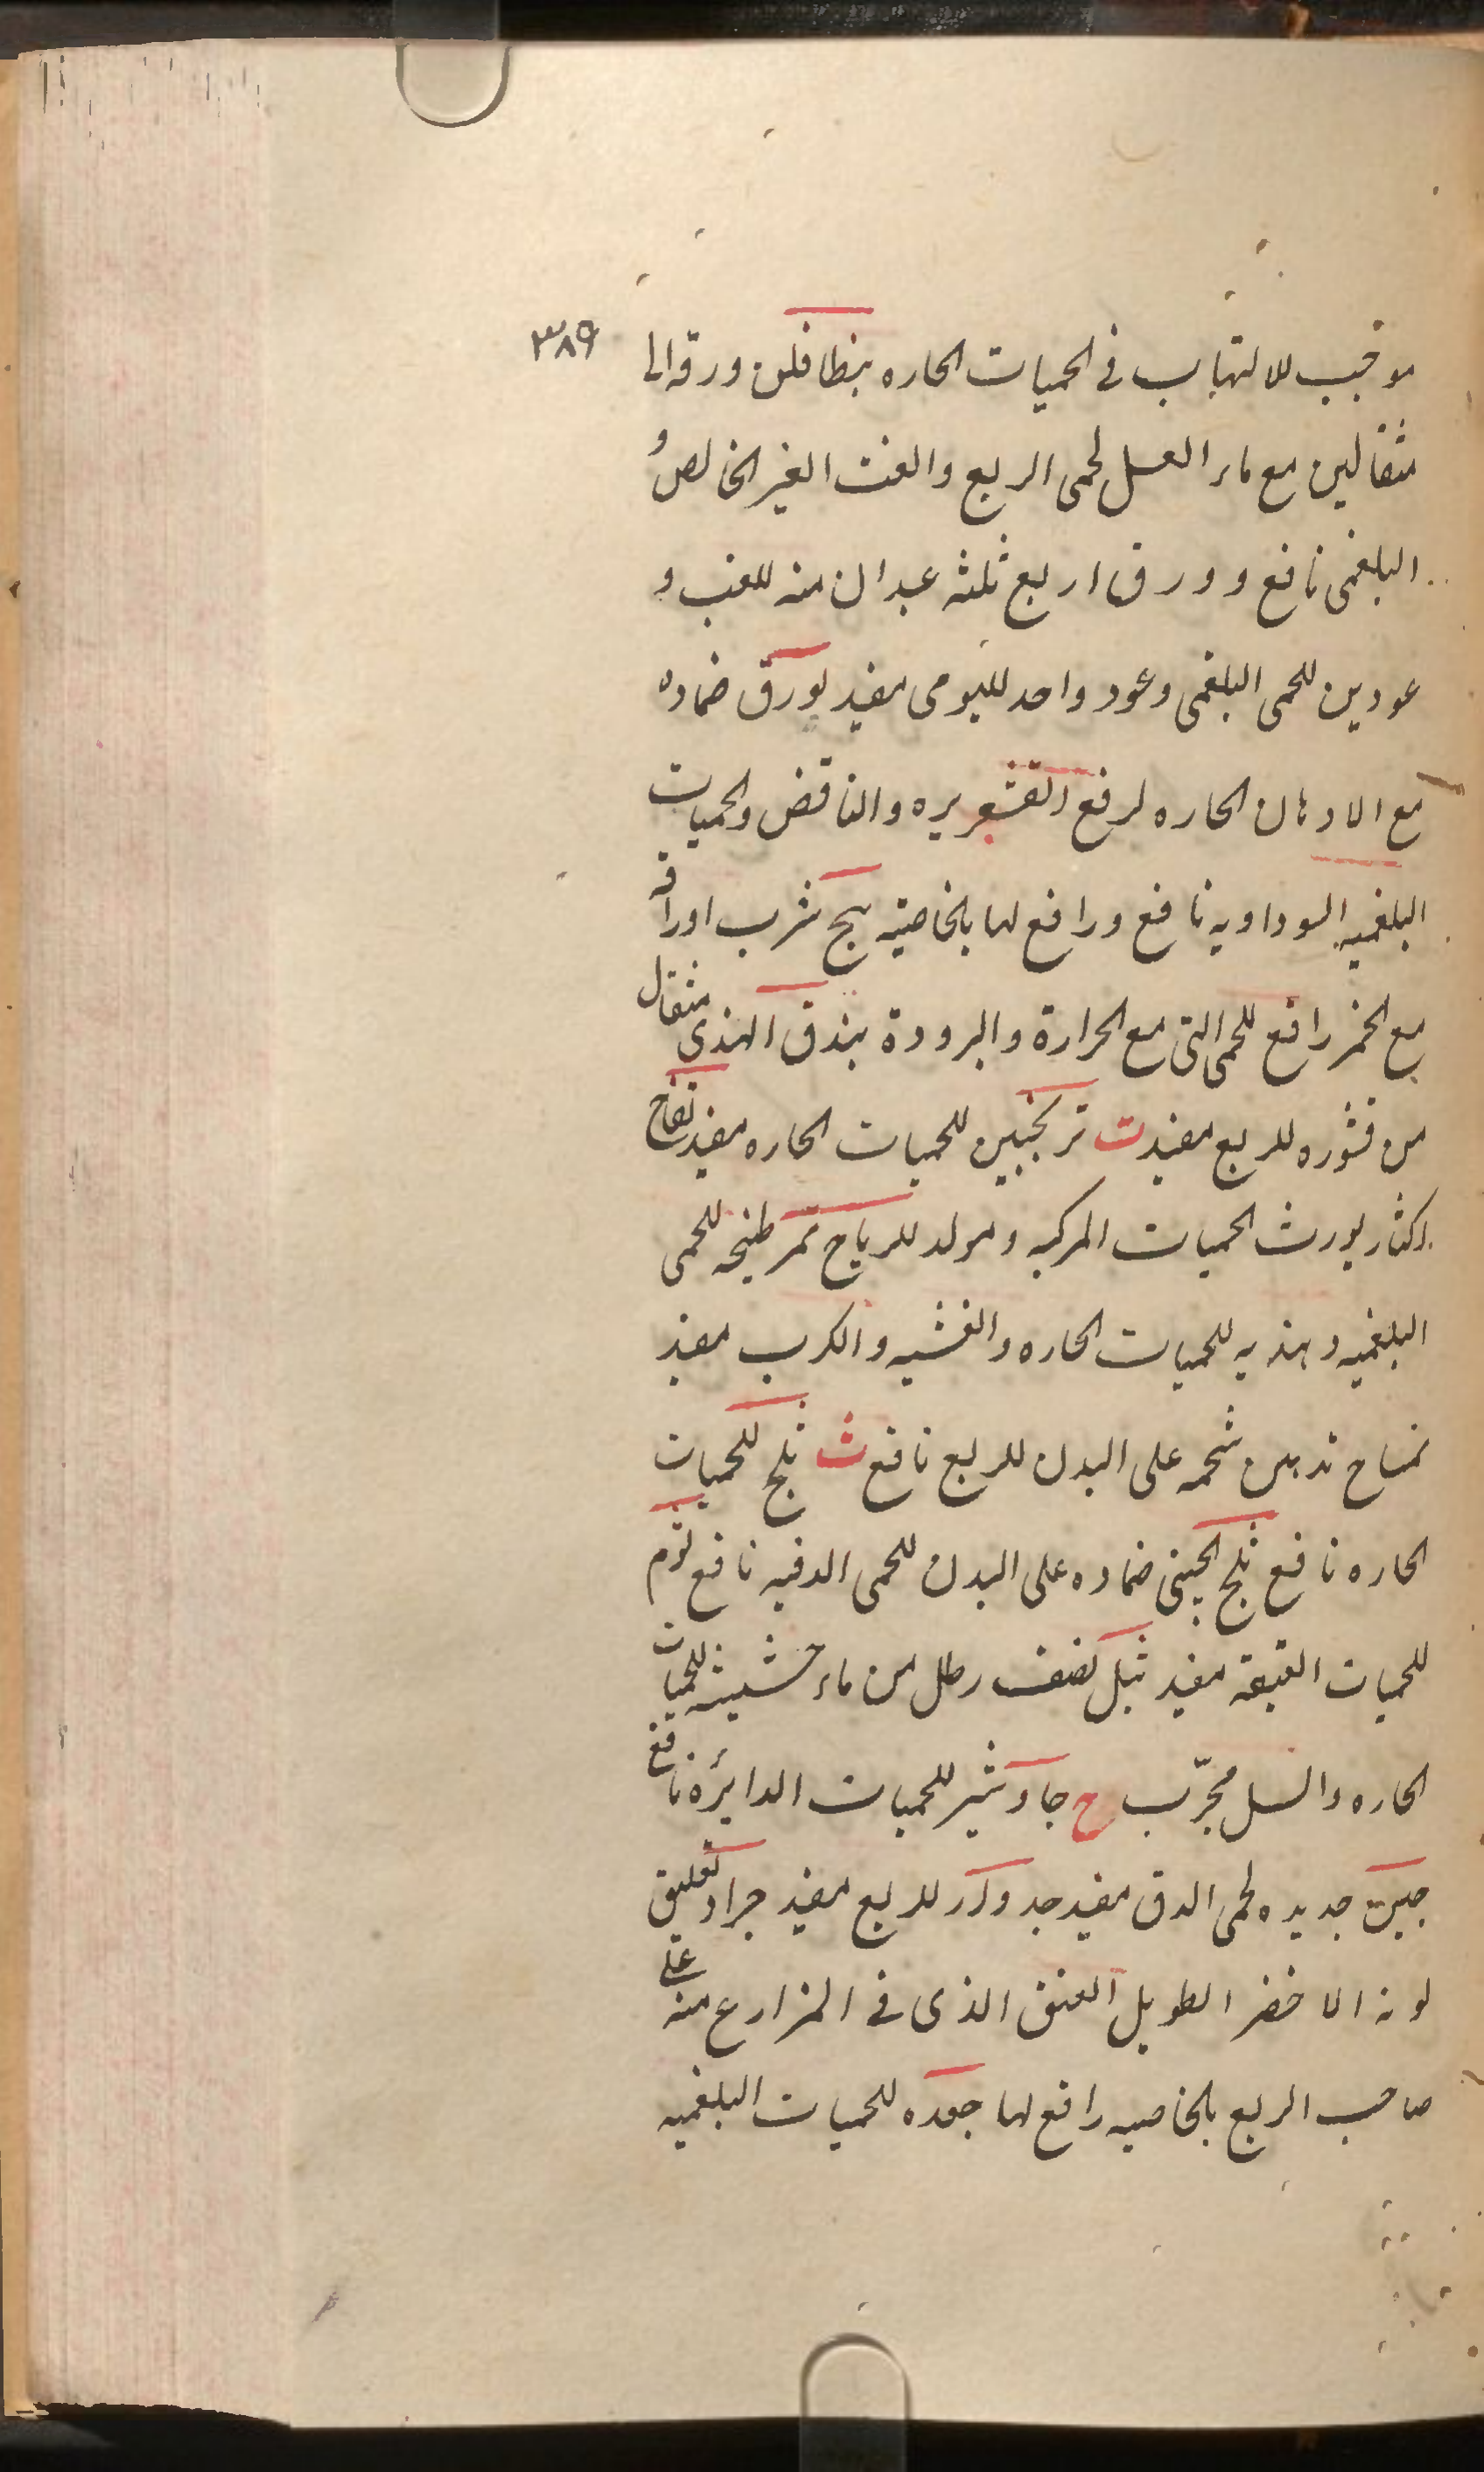 ٣٨٩
موجب للالتهاب فی الحمیات الحاره بنطافلن ورقه الی
مثقالین مع ماء العسل لحمی الربع والغب الغیر الخالص و
البلغمی نافع وورق اربع ثلثه عیدان منه للغب و
عودین للحمی البلغمی وعود واحد للیومی مفید بورق ضماده
مع الادهان الحاره لرفع القشعریره والنافض والحمیات
البلغمیه السوداویه نافع ورافع لها بالخاصیته بنج شرب اوراقه
مع الخمر رافع للحمی التی مع الحرارة والبرودة بندق الهندی مثقال
من قشوره للربع مفید ت ترنجبین للحمیات الحاره مفید تفاح
اکثار یورث الحمیات المرکبه ومولد للریاح تمر طبخه للحمی
البلغمیه وهندیه للحمیات الحاره والغشیه والکرب مفید
تمساح تدهین شحمه علی البدن للربع نافع ث ثلج للحمیات
الحاره نافع ثلج الجینی ضماده علی البدن للحمی الدقیه نافع ثوم
للحمیات العتیقة مفید ثیل نصف رطل من ماء حشیشه للحمیات
الحاره والسل مجرّب ج جاوشیر للحمیات الدایرة نافع
جبن جدیده لحمی الدق مفید جدوار للربع مفید جراد تعلیق
لونه الاخضر الطویل العنق الذی فی المزارع منه علی
صاحب الربع بالخاصیه رافع لها جعده للحمیات البلغمیه